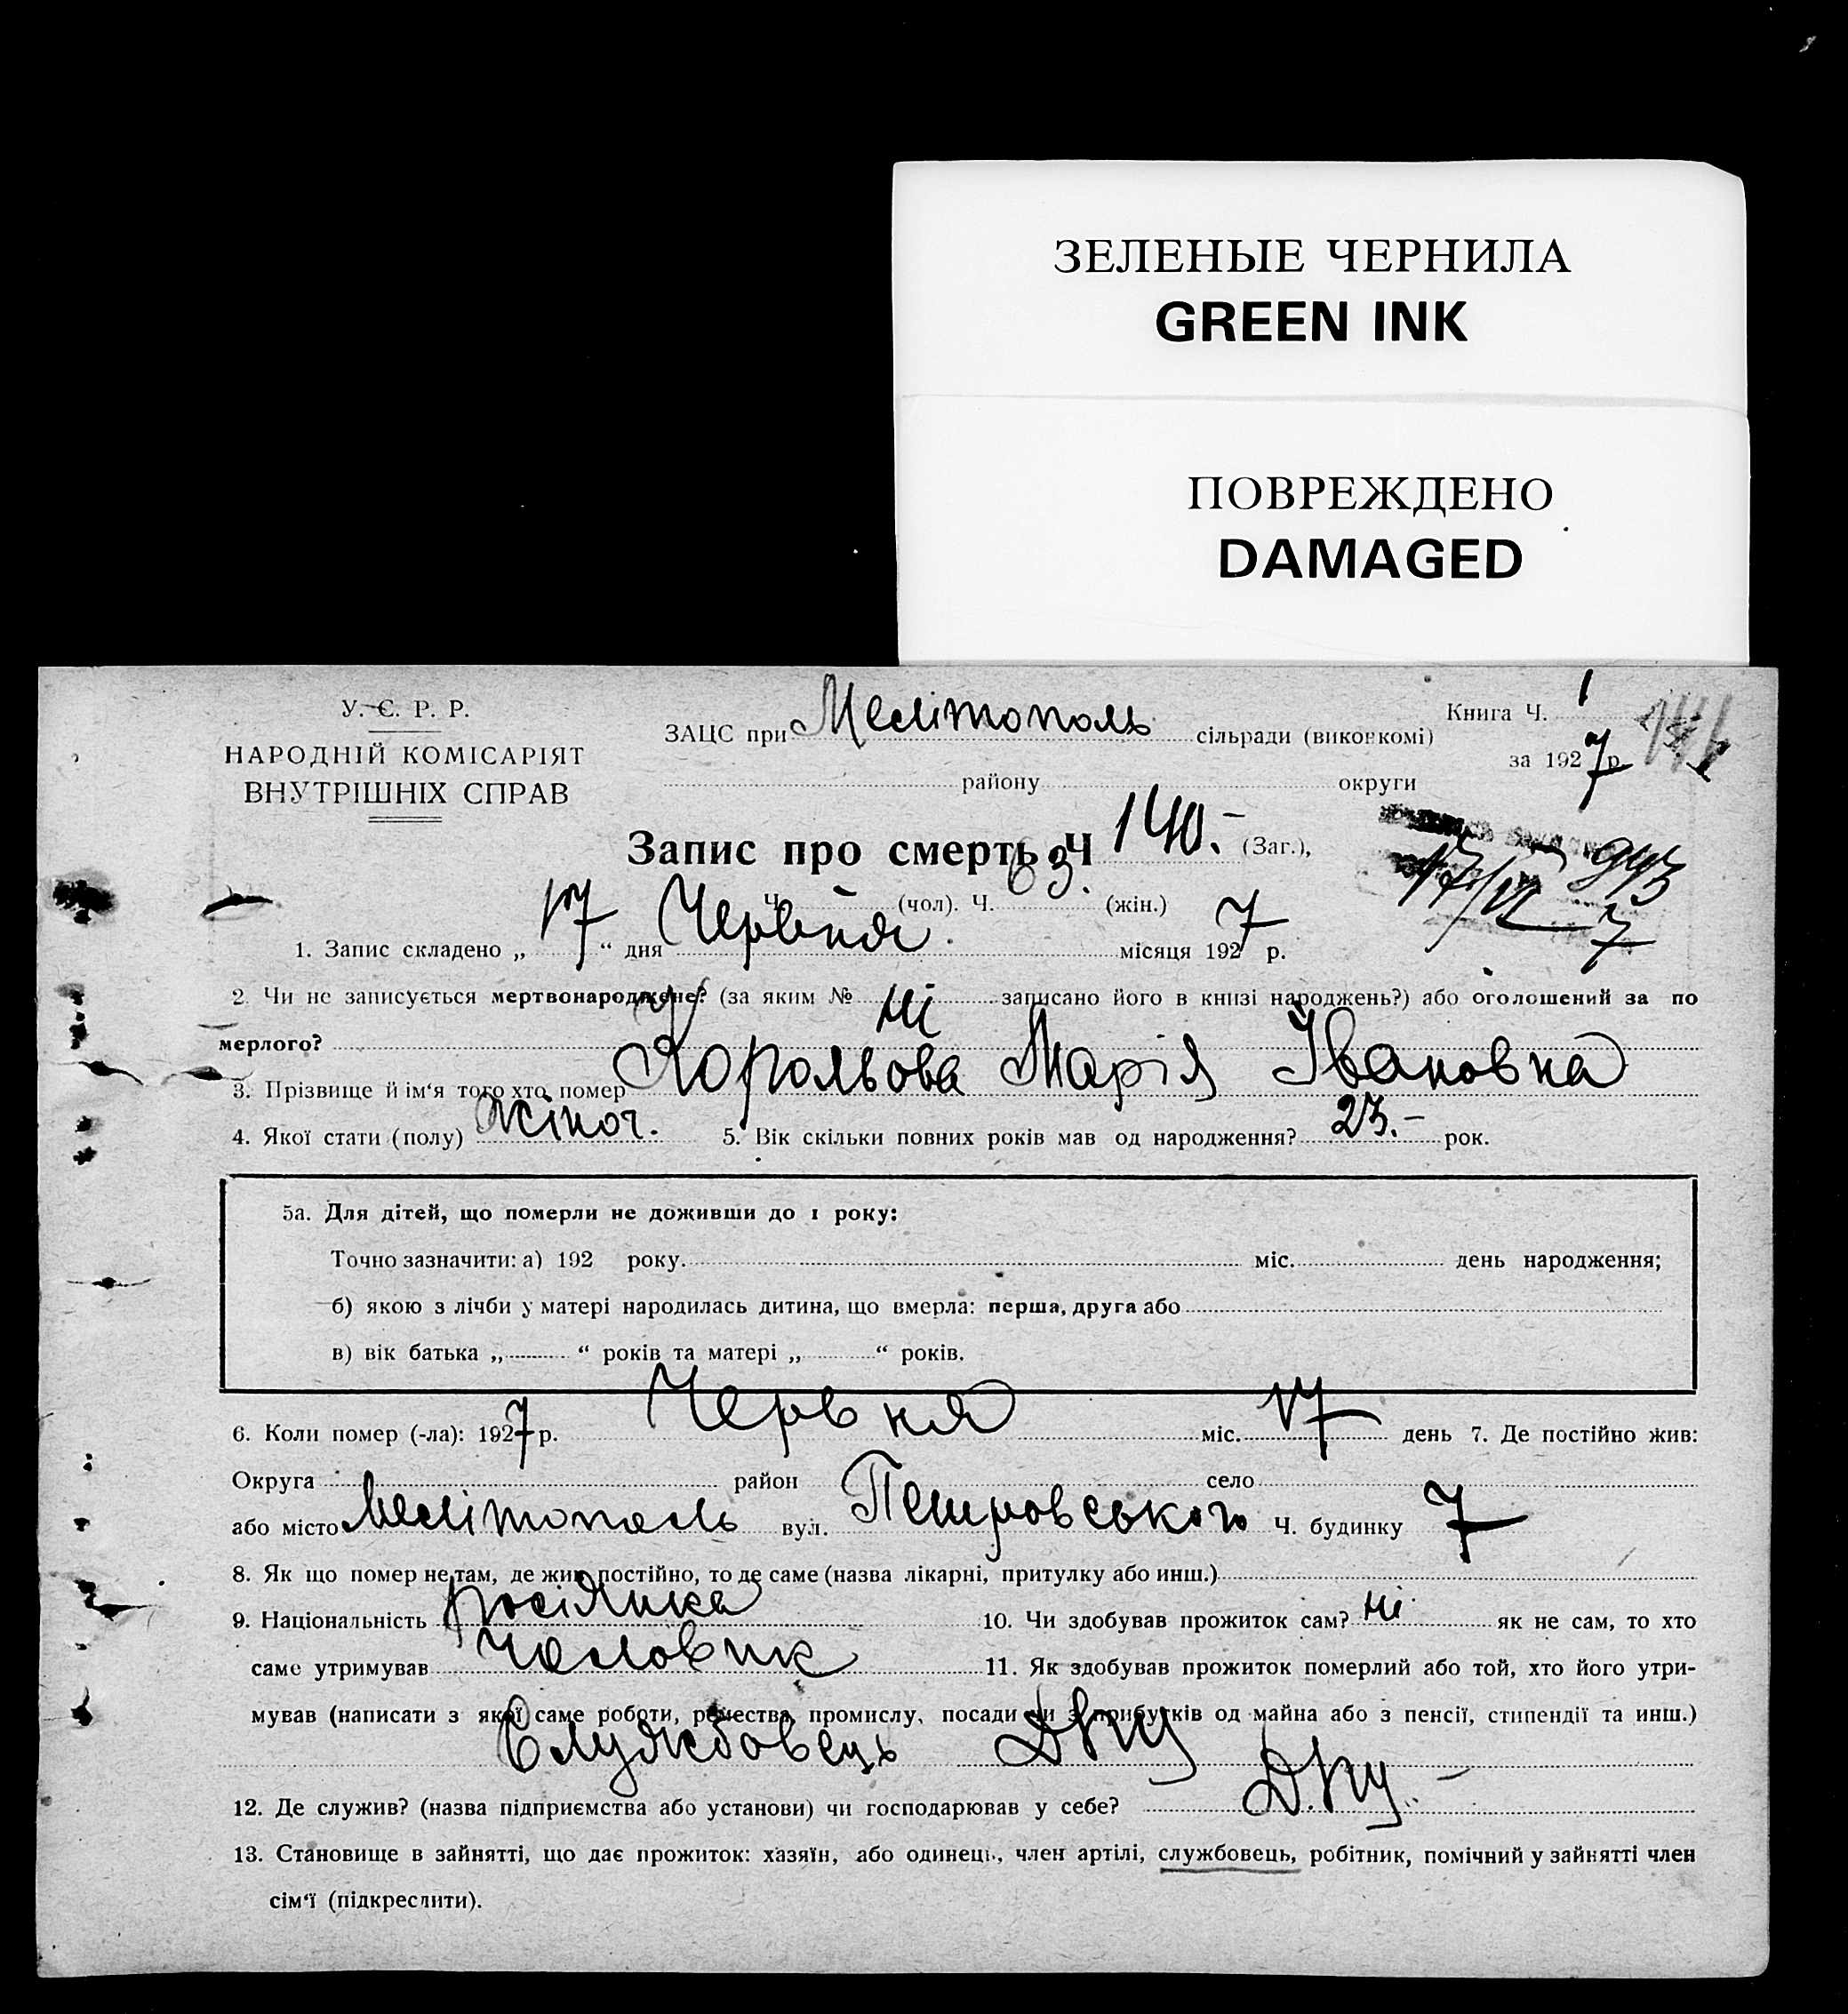 ЗЕЛЕНЫЕ ЧЕРНИЛА
GREEN INK
ПОВРЕЖДЕНО
DAMAGED
У. С. Р. Р.
НАРОДНІЙ КОМІСАРІЯТ
ВНУТРІШНІХ СПРАВ
ЗАЦС при Мелітополь сільради (виконкомі)
району округи
Книга Ч. 1
за 1927 р.
Запис про смерть Ч 140.- (Заг.),
Ч. (чол). Ч. 63. (жін.)
17/VI 943
7
1. Запис складено „17“ дня Червня місяця 1927 р.
2. Чи не записується мертвонароджене? (за яким № ні записано його в книзі народжень?) або оголошений за по
мерлого?
3. Прізвище й ім‘я того хто помер Корольова Марія Івановна
4. Якої стати (полу) жіноч. 5. Вік скільки повних років мав од народження? 23.- рок.
5а. Для дітей, що померли не доживши до 1 року:
Точно зазначити: а) 192 року. міс. день народження;
б) якою з лічби у матері народилась дитина, що вмерла: перша, друга або
в) вік батька „ “ років та матері „ “ років.
6. Коли помер (-ла): 1927 р. Червня міс. 17 день 7. Де постійно жив:
Округа район село
або місто Мелітополь вул. Петровського Ч. будинку 7
8. Як що помер не там, де жив постійно, то де саме (назва лікарні, притулку або инш.)
9. Національність росіянка 10. Чи здобував прожиток сам? ні як не сам, то хто
саме утримував чоловик 11. Як здобував прожиток померлий або той, хто його утри-
мував (написати з якої саме роботи, ремества, промислу, посади чи з прибутків од майна або з пенсії, стипендії та инш.)
Службовець ДПУ
12. Де служив? (назва підприємства або установи) чи господарював у себе? ДПУ.-
13. Становище в зайнятті, що дає прожиток: хазяїн, або одинець, член артілі, службовець, робітник, помічний у зайнятті член
сім‘ї (підкреслити).